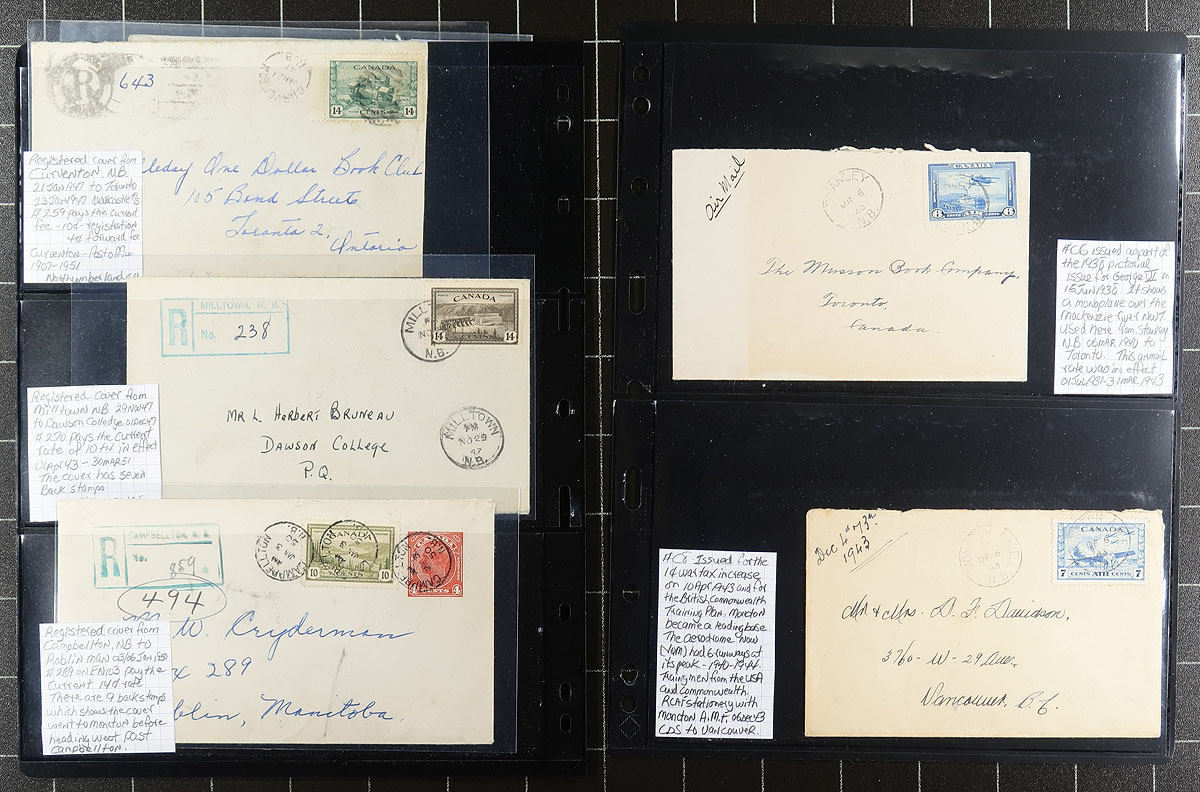 R
643
CURVENTON
N.B.
CANADA
14 CENTS 14
Registered cover from
Curventon, N.B.
21 JAN 1947 to Toronto
23 JAN 1947
#259 pays the current
fee - 10¢ - registration
4¢ forward fee
Curventon - Post office
1907-1951
Northumberland
leday One Dollar Book Club
105 Bond Streets
Toronto 2,
Ontario
R
MILLTOWN, N. B.
No. 238
MILLTOWN
N.B.
CANADA
14 CENTS 14
Registered cover from
Milltown NB 29 Nov 47
to Dawson Colledge 01 Dec 47
#270 pays the current
rate of 10+4 in effect
01 Apr 43 - 30 MAR 51
The cover has seven
Back stamps
MR L. HERBERT BRUNEAU
DAWSON COLLEGE
P.Q.
MILLTOWN
AM
NO 29
47
N.B.
R
CAMPBELLTON N.B.
No. 859
494
CAMPBELLTON
N.B.
AM
JAN 3
50
CANADA
10 CENTS 10
CAMPBELLTON
N.B.
4 CENTS 4
Registered cover from
Campbellton, NB to
Roblin MAN 03/06 JAN 1950
#269 on EN103 pay the
Current 14¢ rate
There are 9 back stamps
which shows the cover
went to moncton before
heading west past
Campbellton.
W. Cryderman
x 289
blin, Manitoba.
Air Mail
STANLEY
MR 6
40
N.B.
CANADA
6 CENTS AIR CENTS 6
The Musson Book Company,
Toronto.
Canada.
#C6 issued as part of
the 1938 pictorial
issue for George VI on
15 Jun 1938. It shows
a monoplane over the
Mackenzie River NWT.
Used here from Stanley
N.B. 06 MAR 1940 to
Toronto. This airmail
rate was in effect
01 Jul 1931-31 MAR 1943
#C8 Issued for the
1¢ war tax increase
on 10 Apr 1943 and for
the British Commonwealth
Training Plan. Moncton
became a leading base
The aerodrome now
(YQM) had 6 runways at
its peak - 1940-1944.
Training men from the USA
and commonwealth.
RCAF stationery with
Moncton A.M.F. 06 Dec 43
CDS to VANCOUVER.
Dec 4th/43.
1943
MONCTON A.M.F.
DE 6
43
N.B.
CANADA
7 CENTS AIR CENTS 7
Mr & Mrs. D. F. Davidson,
3760 - W - 29 Ave.,
Vancouver, B.C.